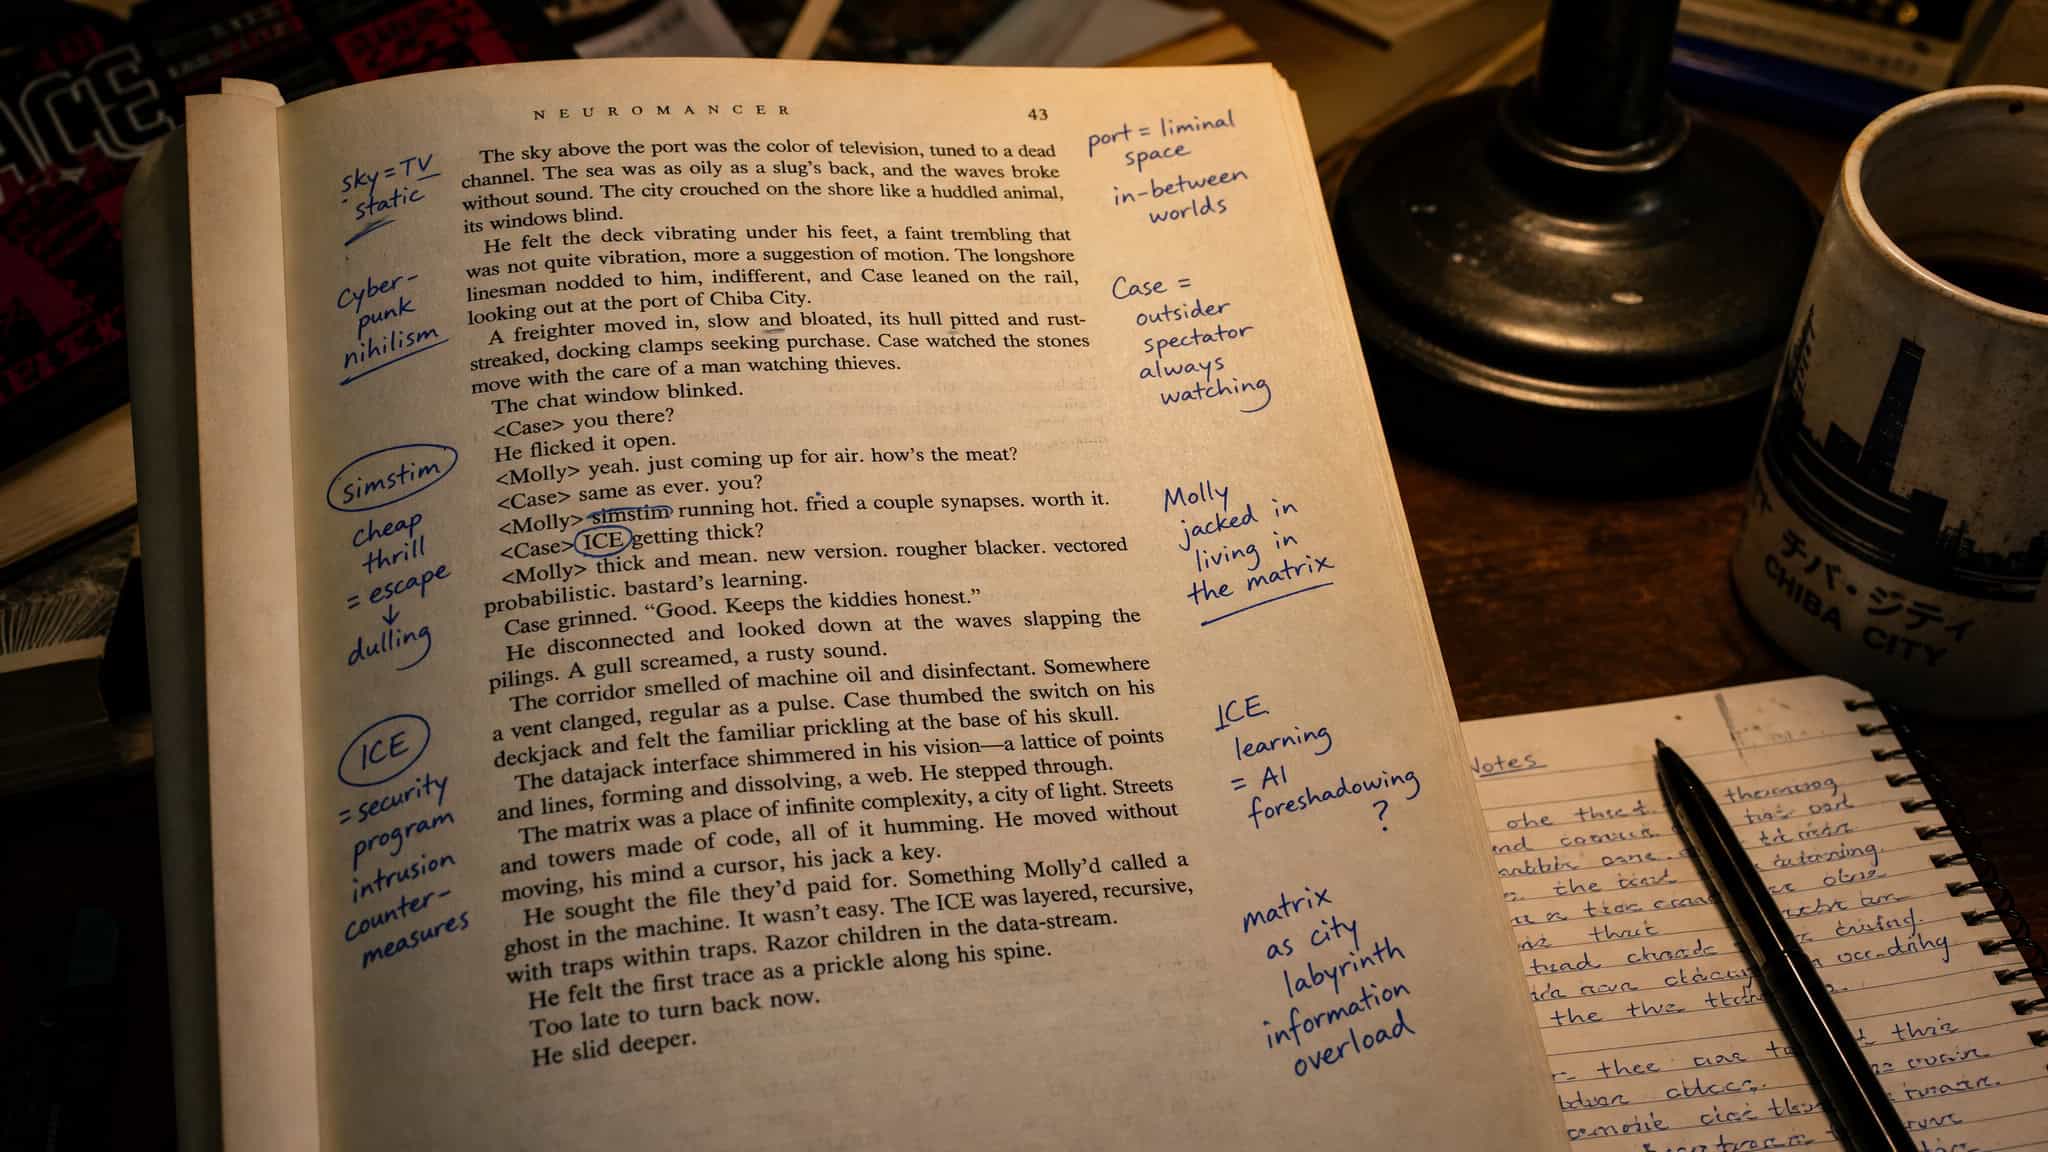 ACE
NEUROMANCER 43
The sky above the port was the color of television, tuned to a dead
channel. The sea was as oily as a slug's back, and the waves broke
without sound. The city crouched on the shore like a huddled animal,
its windows blind.
He felt the deck vibrating under his feet, a faint trembling that
was not quite vibration, more a suggestion of motion. The longshore
linesman nodded to him, indifferent, and Case leaned on the rail,
looking out at the port of Chiba City.
A freighter moved in, slow and bloated, its hull pitted and rust-
streaked, docking clamps seeking purchase. Case watched the stones
move with the care of a man watching thieves.
The chat window blinked.
<Case> you there?
He flicked it open.
<Molly> yeah. just coming up for air. how's the meat?
<Case> same as ever. you?
<Molly> simstim running hot. fried a couple synapses. worth it.
<Case> ICE getting thick?
<Molly> thick and mean. new version. rougher blacker. vectored
probabilistic. bastard's learning.
Case grinned. “Good. Keeps the kiddies honest.”
He disconnected and looked down at the waves slapping the
pilings. A gull screamed, a rusty sound.
The corridor smelled of machine oil and disinfectant. Somewhere
a vent clanged, regular as a pulse. Case thumbed the switch on his
deckjack and felt the familiar prickling at the base of his skull.
The datajack interface shimmered in his vision—a lattice of points
and lines, forming and dissolving, a web. He stepped through.
The matrix was a place of infinite complexity, a city of light. Streets
and towers made of code, all of it humming. He moved without
moving, his mind a cursor, his jack a key.
He sought the file they'd paid for. Something Molly'd called a
ghost in the machine. It wasn't easy. The ICE was layered, recursive,
with traps within traps. Razor children in the data-stream.
He felt the first trace as a prickle along his spine.
Too late to turn back now.
He slid deeper.
sky = TV
static
Cyber-
punk
nihilism
simstim
cheap
thrill
= escape
↓
dulling
ICE
= security
program
intrusion
counter-
measures
port = liminal
space
in-between
worlds
Case =
outsider
spectator
always
watching
Molly
jacked in
living in
the matrix
ICE
learning
= AI
foreshadowing
?
matrix
as city
labyrinth
information
overload
チバ・シティ
CHIBA CITY
Notes